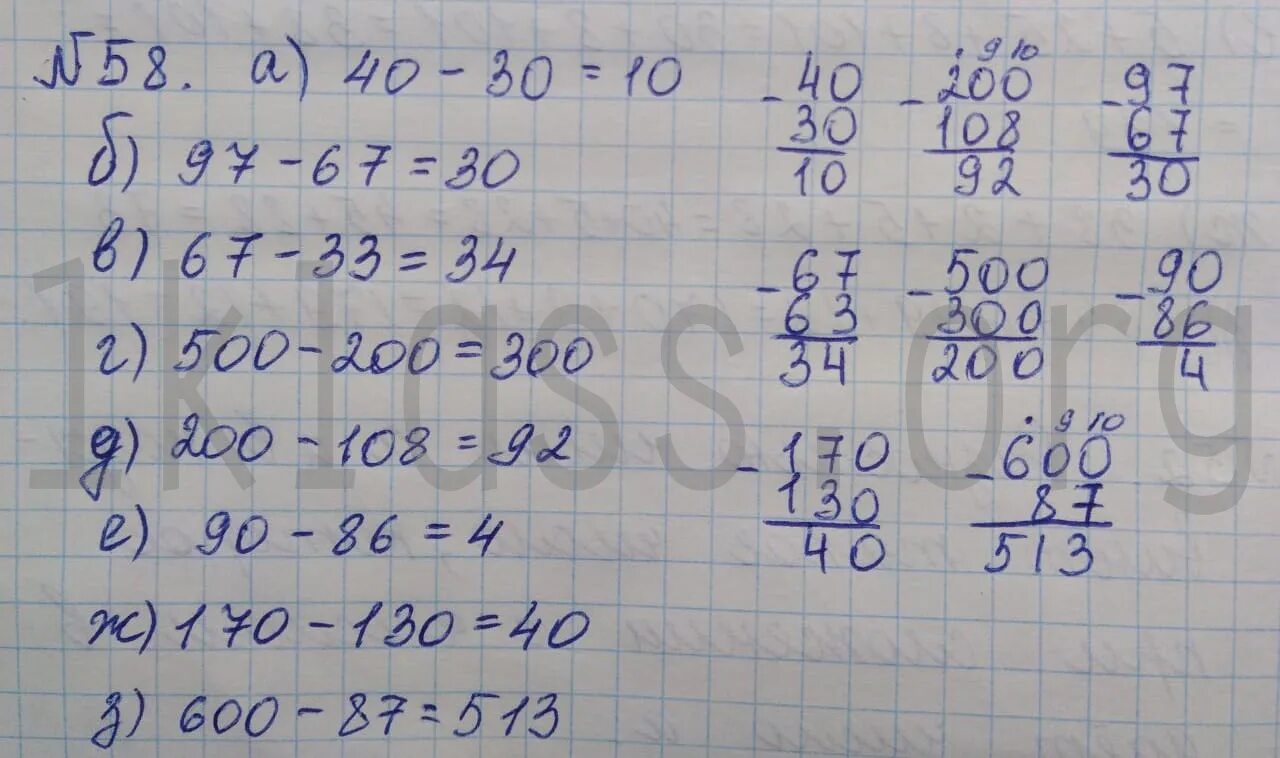 №58. а) 40 - 30 = 10
б) 97 - 67 = 30
в) 67 - 33 = 34
г) 500 - 200 = 300
д) 200 - 108 = 92
е) 90 - 86 = 4
ж) 170 - 130 = 40
з) 600 - 87 = 513
. 9 10
- 40 - 200 - 97
30 108 67
10 92 30
- 67 - 500 - 90
63 300 86
34 200 4
. 9 10
- 170 - 600
130 87
40 513
1klass.org